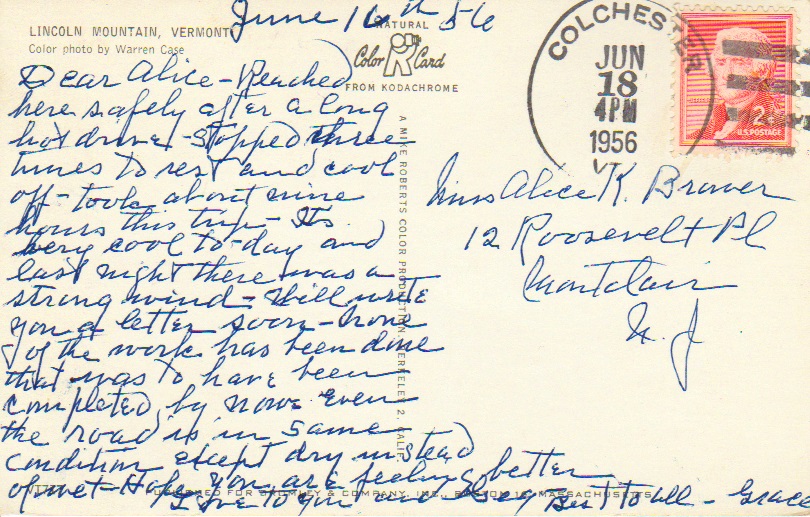 June 16th 56
LINCOLN MOUNTAIN, VERMONT
Color photo by Warren Case
NATURAL
Color Card
FROM KODACHROME
Dear Alice - Reached
here safely after a long
hot drive - stopped three
times to rest and cool
off - took about nine
hours this trip - Its
very cool to-day and
last night there was a
strong wind - Will write
you a letter soon - None
of the work has been done
that was to have been
completed by now. Even
the road is in same
condition except dry instead
of wet - Hope you are feeling better
Love to you and Best to all - Grace
A MIKE ROBERTS COLOR PRODUCTION, BERKELEY 2, CALIF.
PUBLISHED FOR BROMLEY & COMPANY, INC., BOSTON 16, MASSACHUSETTS
COLCHESTER
JUN
18
4PM
1956
VT.
2¢
U.S. POSTAGE
Miss Alice K. Brower
12 Roosevelt Pl
Montclair
N. J.